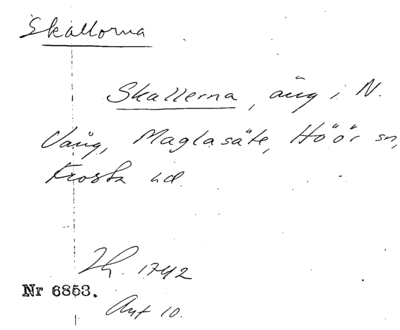 Skallorna
Skallerna, äng i N.
Vång, Maglasäte, Höör sn,
Frosta hd.
1742
Nr 6853.
Akt 10.